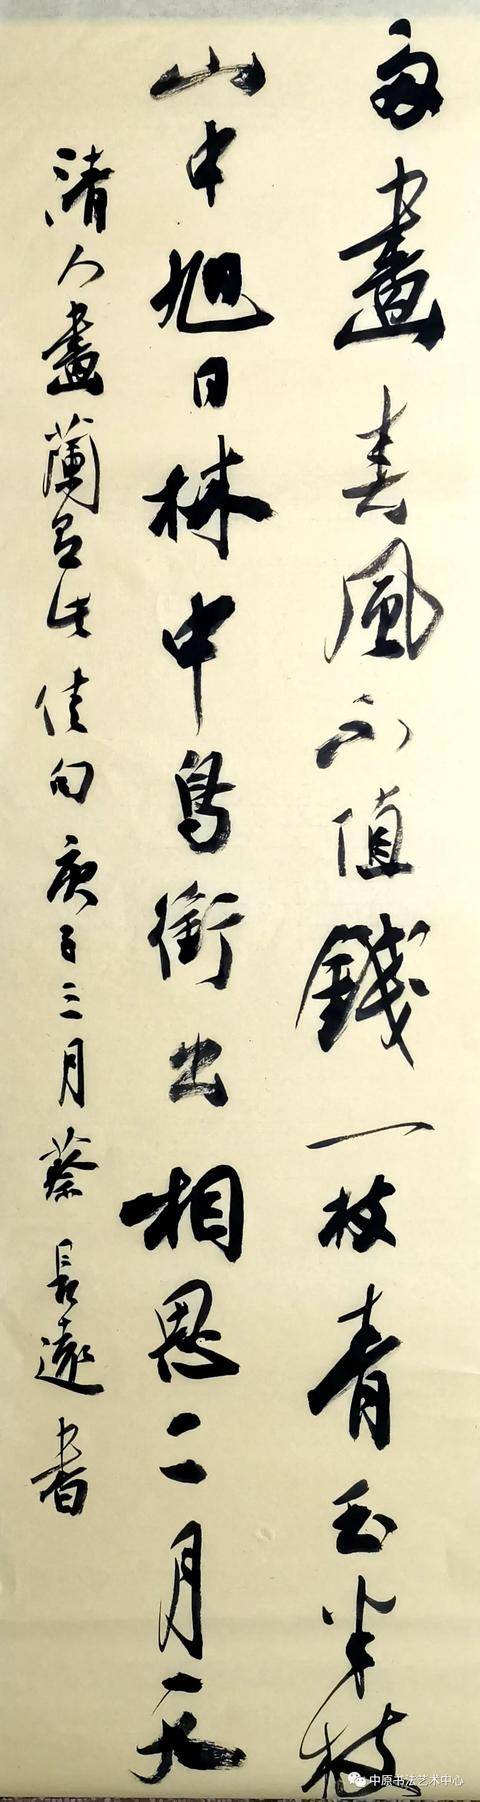 畫春風不值錢一枝青玉半枝
山中旭日林中鳥銜出相思二月天
清人畫蘭佳句庚子三月蔡長遠書
中原书法艺术中心